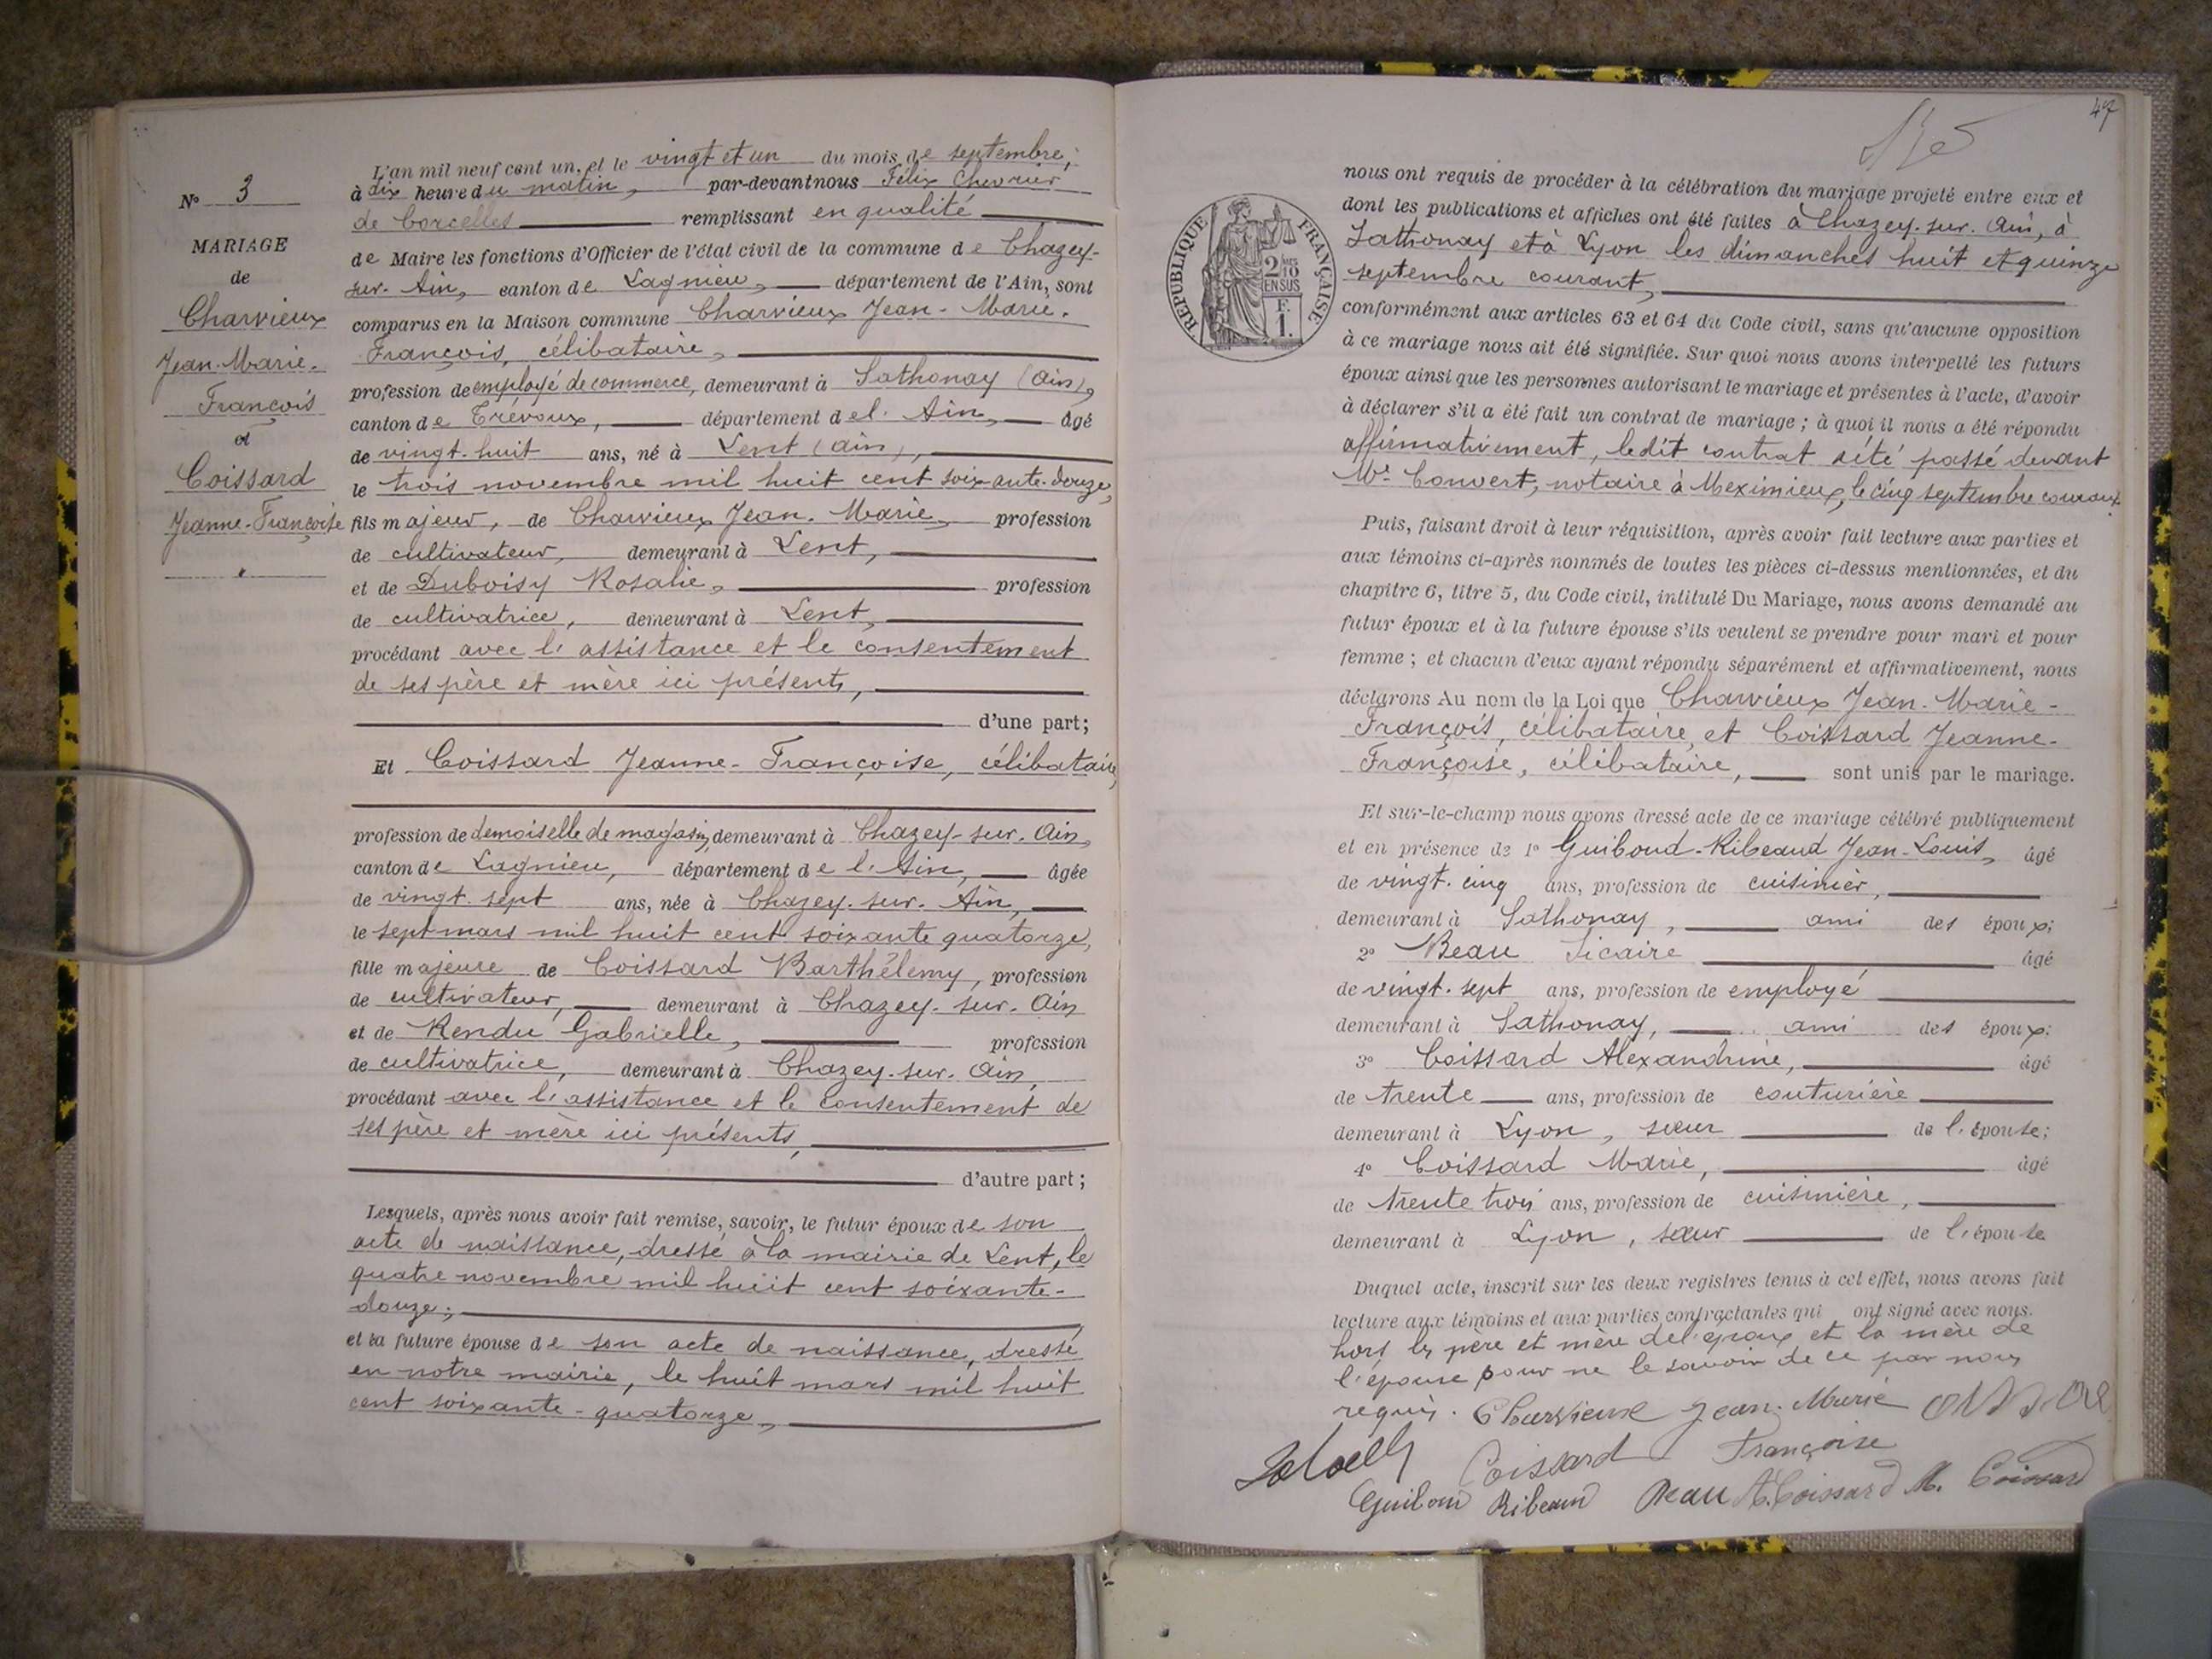 N° 3
MARIAGE
de
Charvieux
Jean-Marie-
François
et
Coissard
Jeanne-Françoise
L'an mil neuf cent un, et le vingt et un du mois de septembre,
à dix heure du matin, par-devant nous Félix Chevrier
de Corcelles remplissant en qualité
de Maire les fonctions d'Officier de l'état civil de la commune de Chazey-
sur-Ain, canton de Lagnieu, département de l'Ain, sont
comparus en la Maison commune Charvieux Jean-Marie-
François, célibataire,
profession de employé de commerce, demeurant à Sathonay (Ain),
canton de Trévoux, département de l'Ain, âgé
de vingt-huit ans, né à Lent (Ain),
le trois novembre mil huit cent soixante-douze,
fils majeur, de Charvieux Jean-Marie, profession
de cultivateur, demeurant à Lent,
et de Duboisy Rosalie, profession
de cultivatrice, demeurant à Lent,
procédant avec l'assistance et le consentement
de ses père et mère ici présents,
d'une part;
Et Coissard Jeanne-Françoise, célibataire,
profession de demoiselle de magasin, demeurant à Chazey-sur-Ain,
canton de Lagnieu, département de l'Ain, âgée
de vingt-sept ans, née à Chazey-sur-Ain,
le sept mars mil huit cent soixante quatorze,
fille majeure de Coissard Barthélemy, profession
de cultivateur, demeurant à Chazey-sur-Ain
et de Rendu Gabrielle, profession
de cultivatrice, demeurant à Chazey-sur-Ain,
procédant avec l'assistance et le consentement de
ses père et mère ici présents,
d'autre part;
Lesquels, après nous avoir fait remise, savoir, le futur époux de son
acte de naissance, dressé à la mairie de Lent, le
quatre novembre mil huit cent soixante-
douze;
et la future épouse de son acte de naissance, dressé
en notre mairie, le huit mars mil huit
cent soixante-quatorze,
47
RÉPUBLIQUE FRANÇAISE
2 10
EN SUS
F.
1.
nous ont requis de procéder à la célébration du mariage projeté entre eux et
dont les publications et affiches ont été faites à Chazey-sur-Ain, à
Sathonay et à Lyon les dimanches huit et quinze
septembre courant,
conformément aux articles 63 et 64 du Code civil, sans qu'aucune opposition
à ce mariage nous ait été signifiée. Sur quoi nous avons interpellé les futurs
époux ainsi que les personnes autorisant le mariage et présentes à l'acte, d'avoir
à déclarer s'il a été fait un contrat de mariage; à quoi il nous a été répondu
affirmativement, ledit contrat a été passé devant
Me Convert, notaire à Meximieux, le cinq septembre courant.
Puis, faisant droit à leur réquisition, après avoir fait lecture aux parties et
aux témoins ci-après nommés de toutes les pièces ci-dessus mentionnées, et du
chapitre 6, titre 5, du Code civil, intitulé Du Mariage, nous avons demandé au
futur époux et à la future épouse s'ils veulent se prendre pour mari et pour
femme; et chacun d'eux ayant répondu séparément et affirmativement, nous
déclarons Au nom de la Loi que Charvieux Jean-Marie-
François, célibataire, et Coissard Jeanne-
Françoise, célibataire, sont unis par le mariage.
Et sur-le-champ nous avons dressé acte de ce mariage célébré publiquement
et en présence de 1° Guiboud-Ribeaud Jean-Louis, âgé
de vingt-cinq ans, profession de cuisinier,
demeurant à Sathonay, ami des époux;
2° Beau Sicaire âgé
de vingt-sept ans, profession de employé
demeurant à Sathonay, ami des époux;
3° Coissard Alexandrine, âgé
de trente ans, profession de couturière
demeurant à Lyon, sœur de l'épouse;
4° Coissard Marie, âgé
de trente trois ans, profession de cuisinière,
demeurant à Lyon, sœur de l'épouse
Duquel acte, inscrit sur les deux registres tenus à cet effet, nous avons fait
lecture aux témoins et aux parties contractantes qui ont signé avec nous.
hors les père et mère de l'époux et la mère de
l'épouse pour ne le savoir de ce par nous
requis. Charvieux Jean-Marie
Coissard Françoise
Guiboud Ribeaud Beau A. Coissard M. Coissard